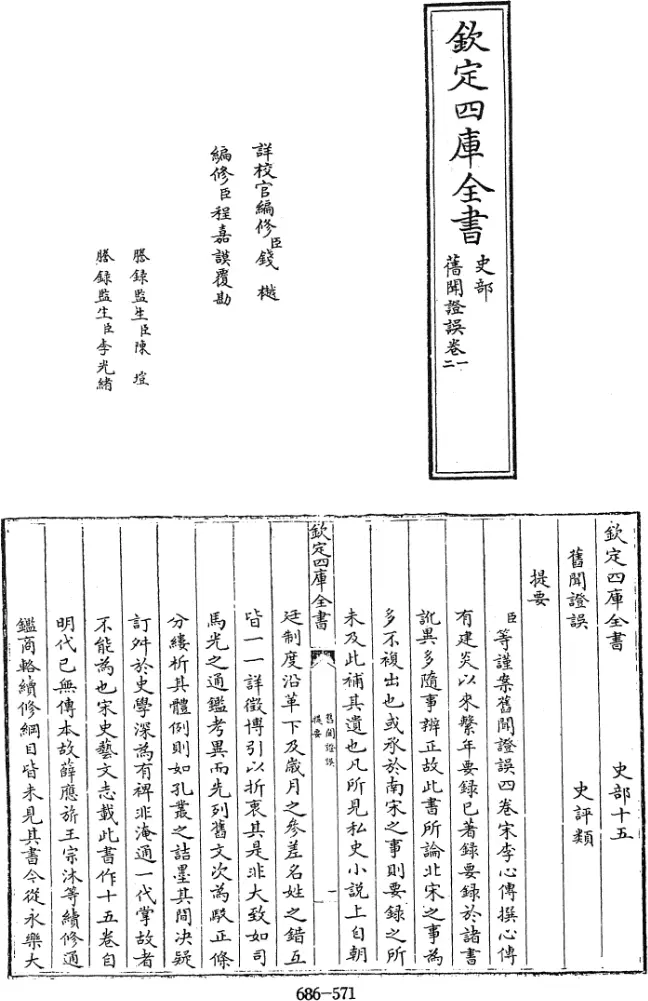 欽定四庫全書
史部
舊聞證誤卷一
二
詳校官編修臣錢樾
編修臣程嘉謨覆勘
謄錄監生臣陳塏
謄錄監生臣李光緒
欽定四庫全書
史部十五
舊聞證誤
史評類
提要
臣等謹案舊聞證誤四卷宋李心傳撰心傳
有建炎以來繫年要錄已著錄要錄於諸書
訛異多隨事辨正故此書所論北宋之事為
多不複出也或承於南宋之事則要錄之所
未及此補其遺也凡所見私史小說上自朝
欽定四庫全書
舊聞證誤
提要
一
廷制度沿革下及歲月之參差名姓之錯互
皆一一詳徵博引以折衷其是非大致如司
馬光之通鑑考異而先列舊文次為駁正條
分縷析其體例則如孔叢之詰墨其間決疑
訂舛於史學深為有裨非淹通一代掌故者
不能為也宋史藝文志載此書作十五卷自
明代已無傳本故薛應旂王宗沐等續修通
鑑商輅續修綱目皆未見其書今從永樂大
686-571